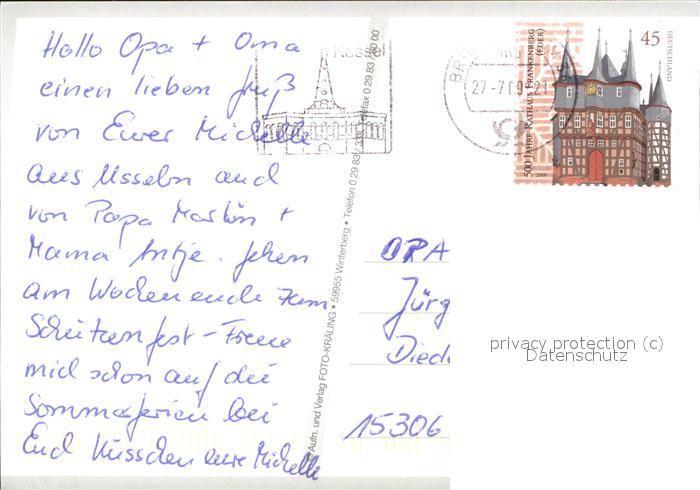 Hallo Opa + Oma
einen lieben Gruß
von Eurer Michelle
aus Usseln und
von Papa Martin +
Mama Antje. Gehen
am Wochenende zum
Schützenfest - Freue
mich schon auf die
Sommerferien bei
Euch Küsschen eure Michelle
Kassel
27-7.09-21
500 JAHRE RATHAUS FRANKENBERG
(EDER)
45
DEUTSCHLAND
2009
Aufn. und Verlag FOTO-KRÄLING • 59955 Winterberg • Telefon 0 29 83 / 3 Telefax 0 29 83 / 80 00
OPA
Jürg
Died
15306
privacy protection (c)
Datenschutz